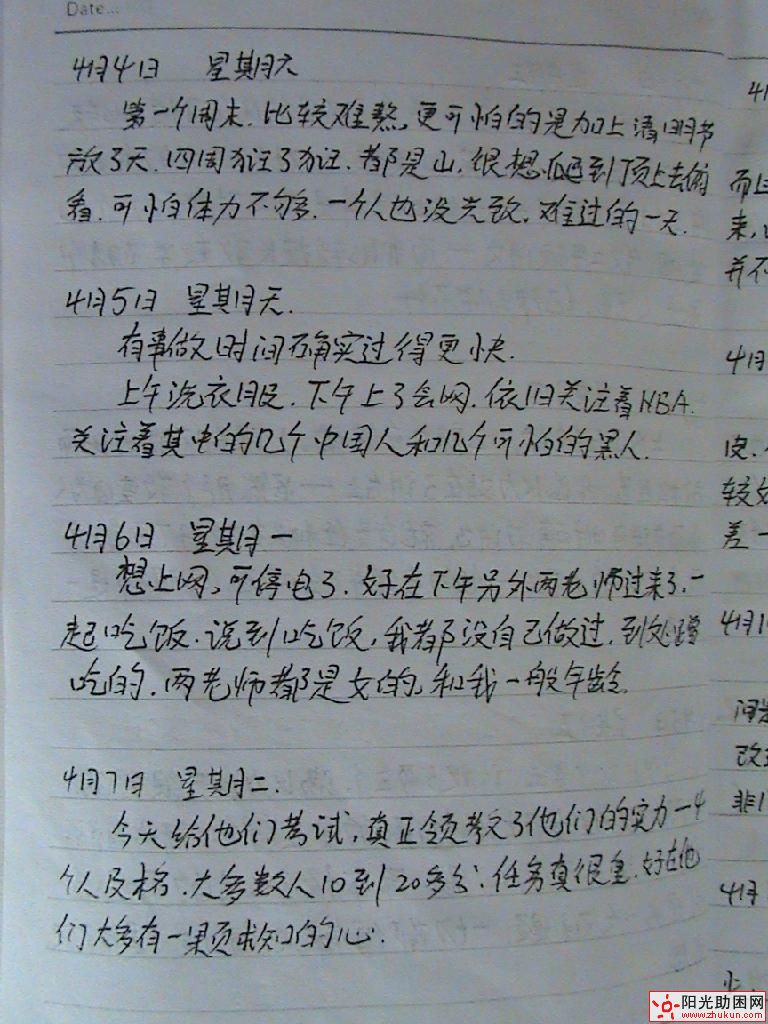 Date...
4月4日 星期六
第一个周末.比较难熬,更可怕的是加上清明节
放了天.四周到了到.都是山,很想爬到顶上去俯
看.可怕体力不够.一个人也没兴致.难过的一天.
4月5日 星期天.
有事做时间确实过得更快.
上午洗衣服.下午上了会网.依旧关注着NBA.
关注着其中的几个中国人和几个可怕的黑人.
4月6日 星期一
想上网,可停电了.好在下午另外两老师过来了.一
起吃饭.说到吃饭,我都没自己做过.到处蹭
吃的.两老师都是女的.和我一般年龄.
4月7日 星期二.
今天给他们考试,真正领教了他们的实力一4
个人及格.大多数人10到20多分.任务真很重.好在他
们大多有一颗求知的心.
4月
而且
来,
并不
4月
皮.
较好
差一
4月1
改
非
4月
阳光助困网
www.zhukun.com